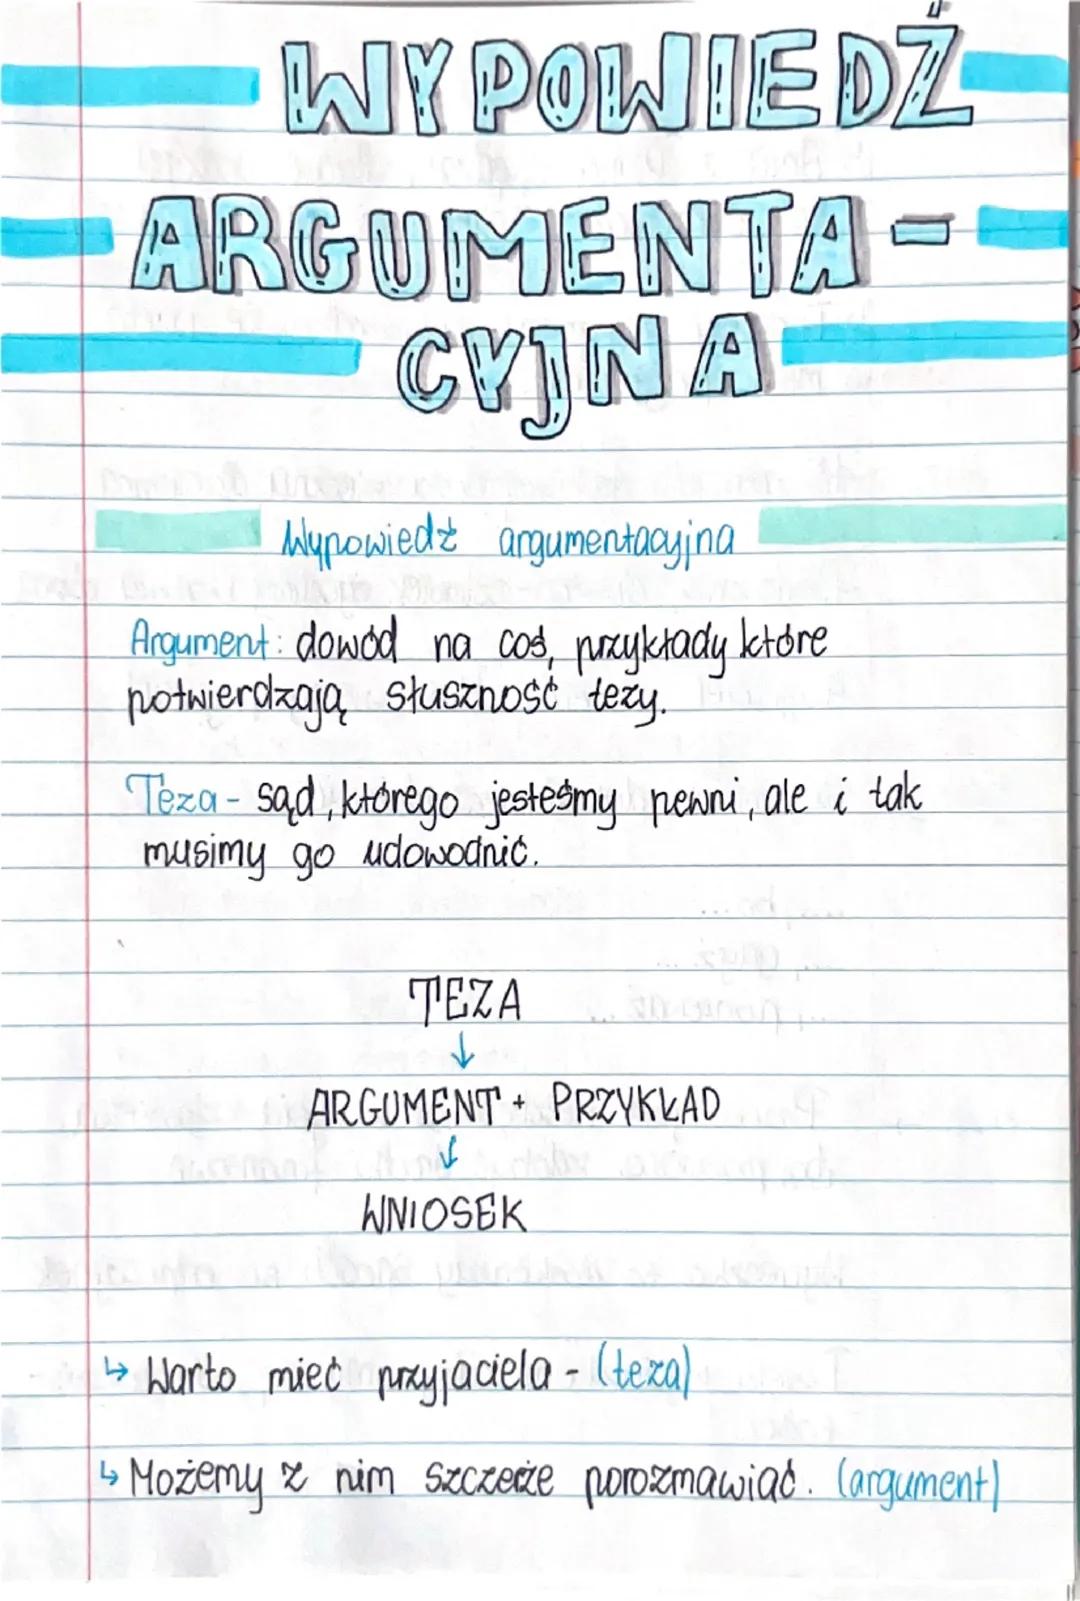 WYPOWIEDŹ
ARGUMENTA-
CYJNA
Wypowiedź argumentacyjna
Argument: dowód na coś, przykłady które
potwierdzają słuszność tezy.
Teza - sąd, którego jesteśmy pewni, ale i tak
musimy go udowodnić.
TEZA
↓
ARGUMENT + PRZYKŁAD
↓
WNIOSEK
↳ Warto mieć przyjaciela - (teza)
↳ Możemy z nim szczerze porozmawiać. (argument)